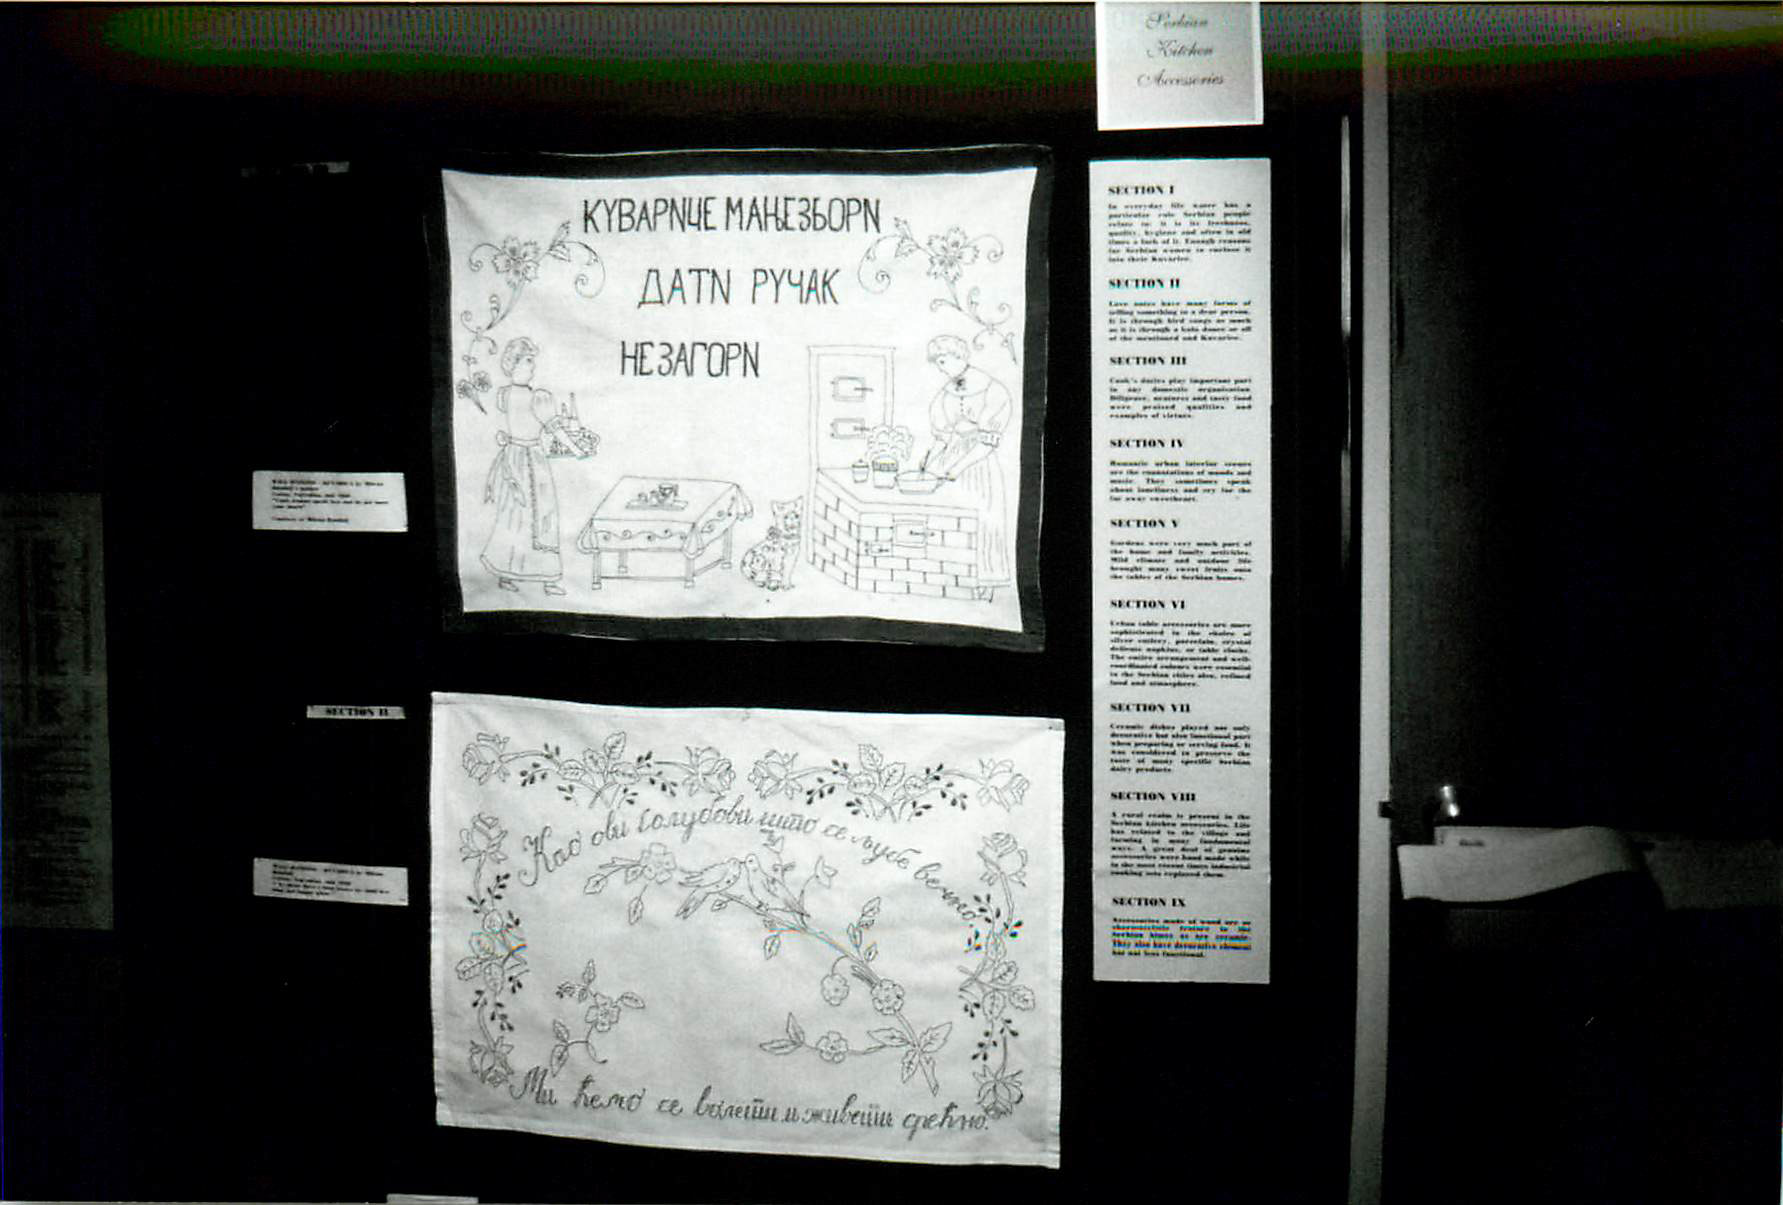 Serbian
Kitchen
Accessories
КУВАРИЦЕ МАЊЕЗБОРИ
ДАТИ РУЧАК
НЕЗАГОРИ
Као ови голубови што се љубе вечно
Ми ћемо се волети и живети срећно.
SECTION II
SECTION I
In everyday life water has a
particular role Serbian people
relate to: it is its freshness,
quality, hygiene and often in old
times a lack of it. Enough reasons
for Serbian women to enclose it
into their Kuvarice.
SECTION II
Love notes have many forms of
telling something to a dear person.
It is through bird songs as much
as it is through a kolo dance or all
of the mentioned and Kuvarice.
SECTION III
Cook's duties play important part
in any domestic organisation.
Diligence, neatness and tasty food
were praised qualities and
examples of virtues.
SECTION IV
Romantic urban interior scenes
are the connotations of moods and
music. They sometimes speak
about loneliness and cry for the
far away sweetheart.
SECTION V
Gardens were very much part of
the home and family activities.
Mild climate and outdoor life
brought many sweet fruits onto
the tables of the Serbian homes.
SECTION VI
Urban table accessories are more
sophisticated in the choice of
silver cutlery, porcelain, crystal
delicate napkins, or table cloths.
The entire arrangement and well-
coordinated colours were essential
to the Serbian cities also, refined
food and atmosphere.
SECTION VII
Ceramic dishes played not only
decorative but also functional part
when preparing or serving food. It
was considered to preserve the
taste of many specific Serbian
dairy products.
SECTION VIII
A rural realm is present in the
Serbian kitchen accessories. Life
has related to the village and
farming in many fundamental
ways. A great deal of genuine
accessories were hand made while
in the most recent times industrial
cooking sets replaced them.
SECTION IX
Accessories made of wood are as
characteristic feature in the
Serbian homes as are ceramic.
They also have decorative element
but not less functional.